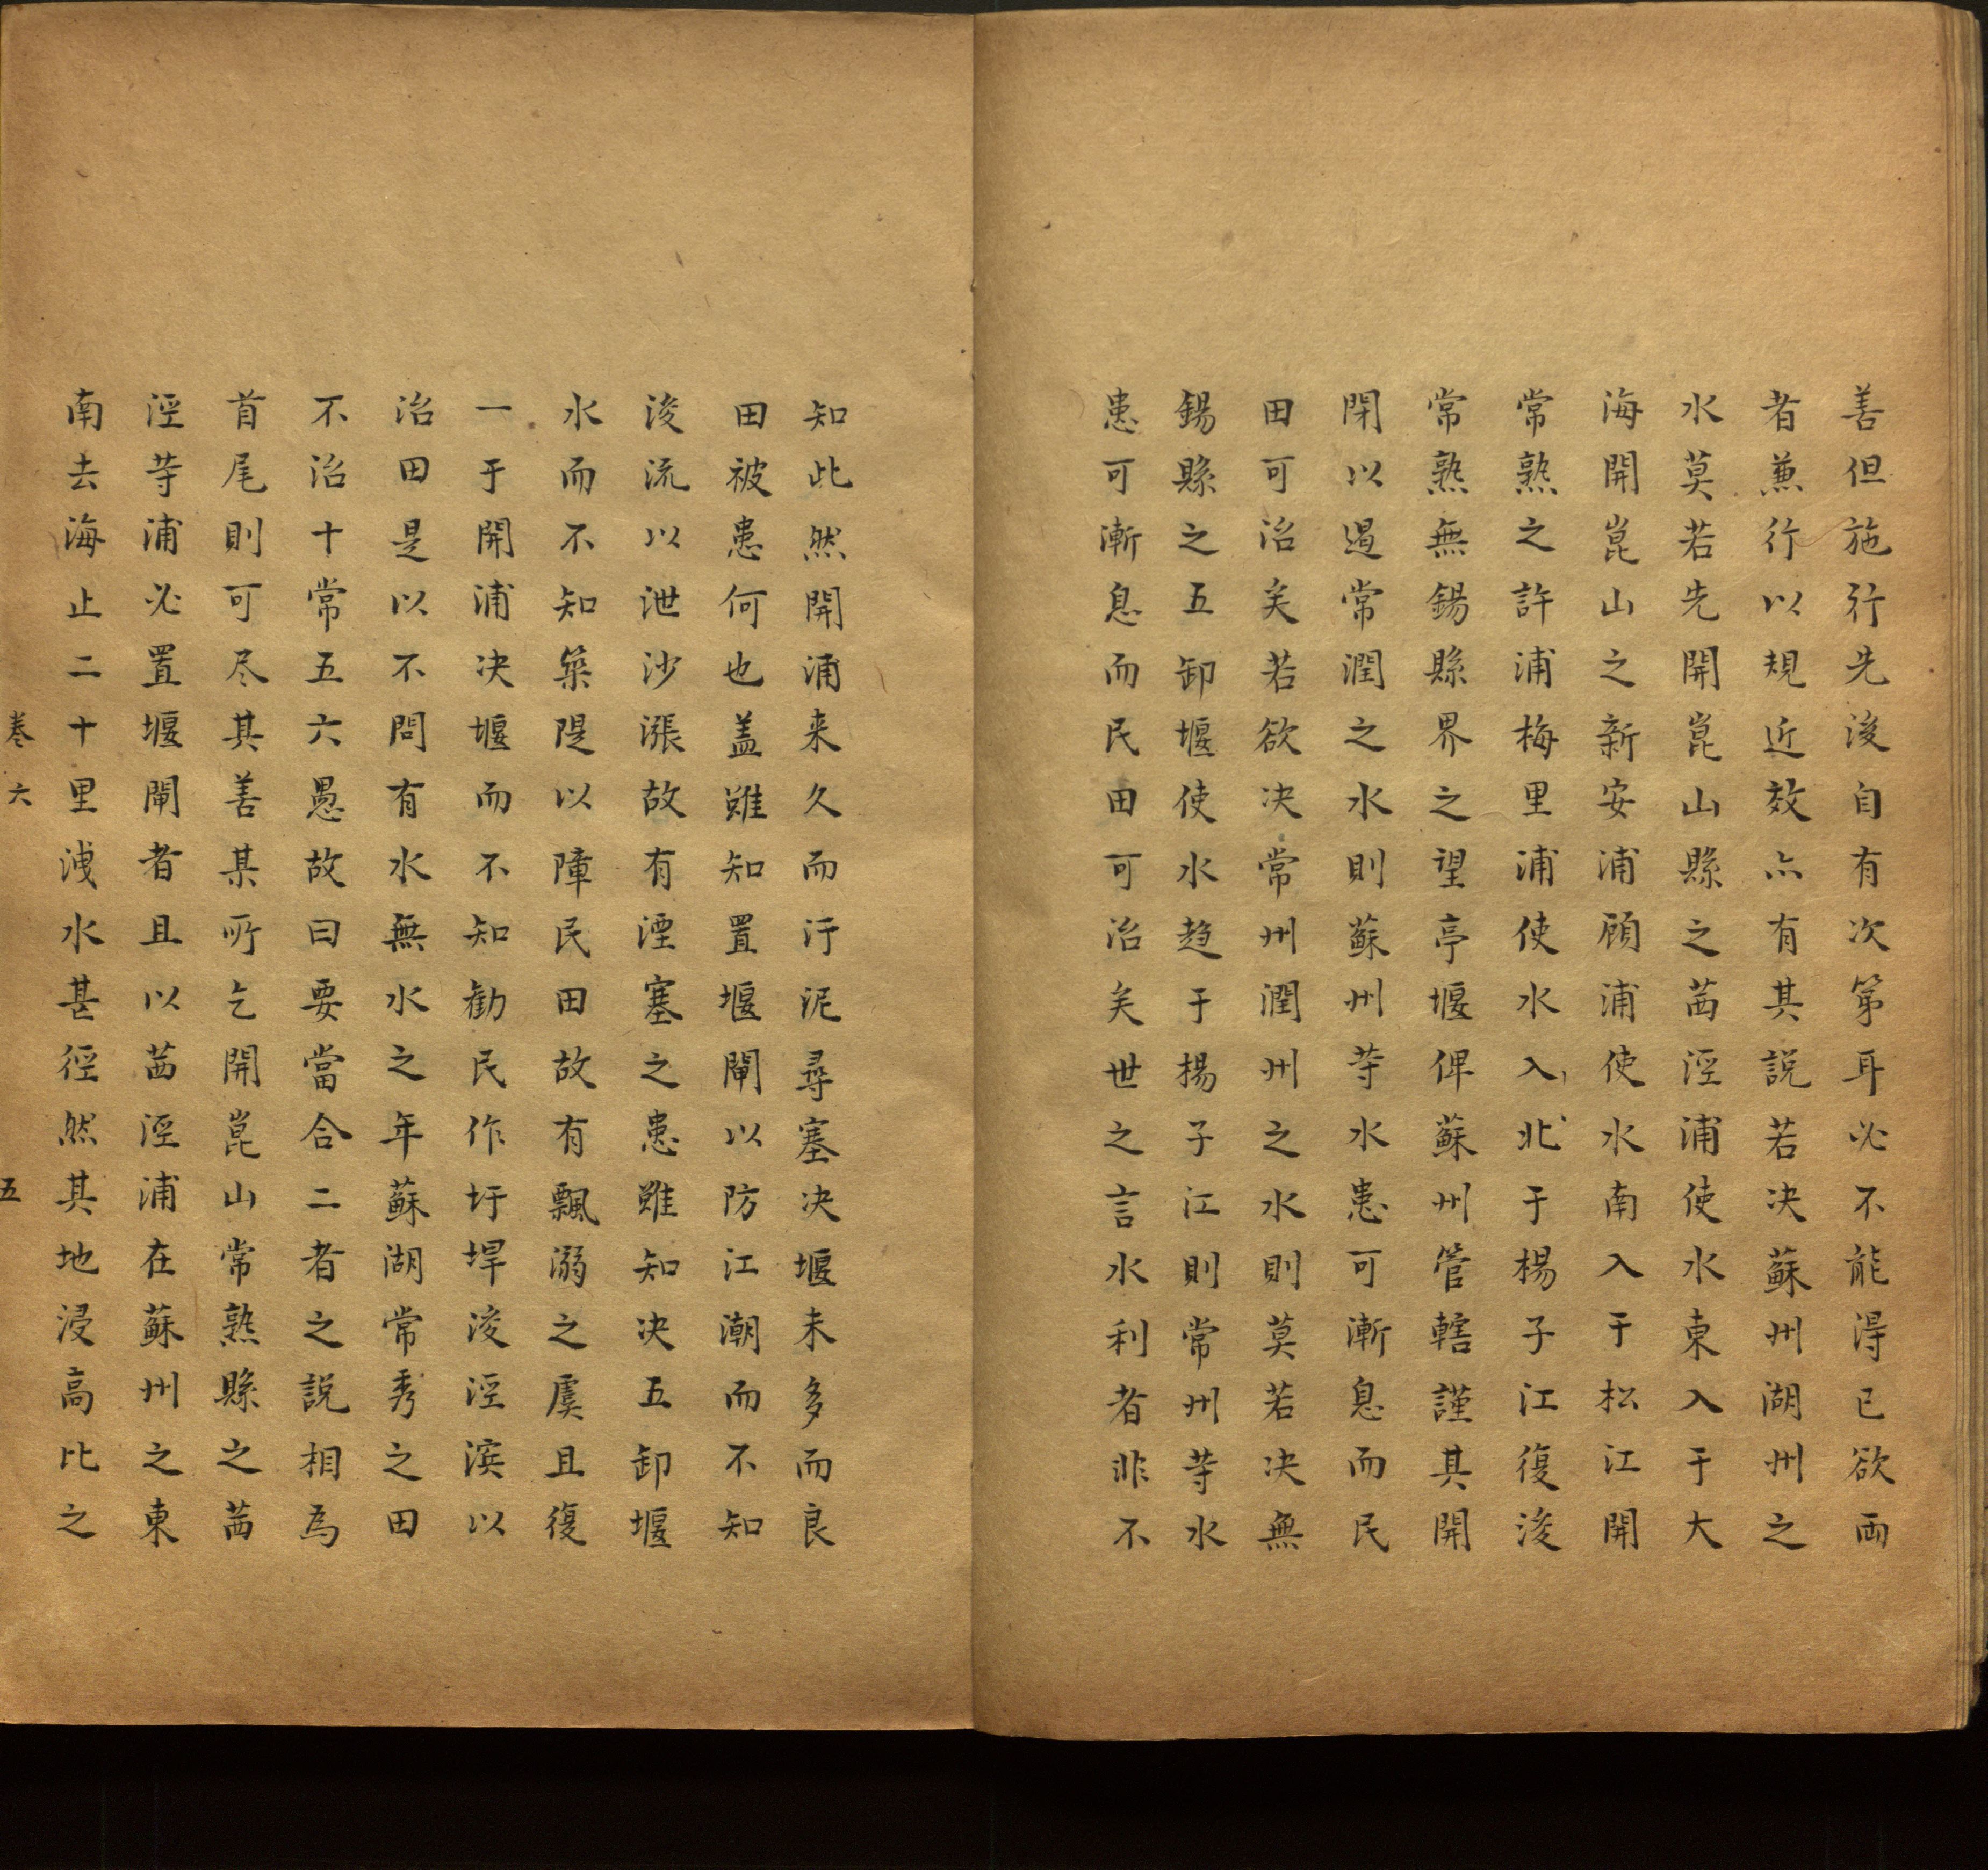 善但施行先後自有次第耳必不能得已欲両
者兼行以規近效亦有其說若决蘇州湖州之
水莫若先開崑山縣之茜涇浦使水東入于大
海開崑山之新安浦顧浦使水南入于松江開
常熟之許浦梅里浦使水入北于楊子江復浚
常熟無錫縣界之望亭堰俾蘇州管轄謹其開
閉以遏常潤之水則蘇州䓁水患可漸息而民
田可治矣若欲决常州潤州之水則莫若决無
錫縣之五卸堰使水趋于楊子江則常州䓁水
患可漸息而民田可治矣世之言水利者非不
知此然開浦来久而汙泥尋塞决堰未多而良
田被患何也盖雖知置堰閘以防江潮而不知
浚流以泄沙漲故有湮塞之患雖知决五卸堰
水而不知築隄以障民田故有飄溺之虞且復
一于開浦决堰而不知勸民作圩埠浚涇浜以
治田是以不問有水無水之年蘇湖常秀之田
不治十常五六愚故曰要當合二者之說相為
首尾則可尽其善某所乞開崑山常熟縣之茜
涇䓁浦必置堰閘者且以茜涇浦在蘇州之東
南去海止二十里洩水甚徑然其地浸高比之
卷六
五